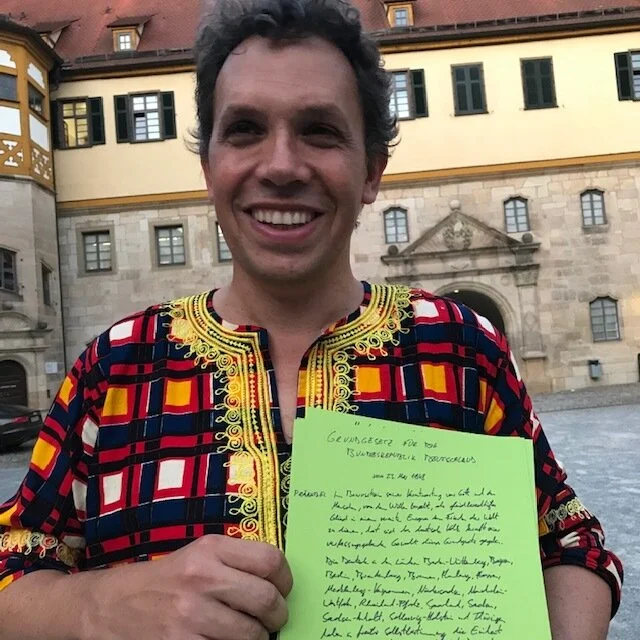 GRUNDGESETZ FÜR DIE
BUNDESREPUBLIK DEUTSCHLAND
vom 23. Mai 1949
PRÄAMBEL Im Bewusstsein seiner Verantwortung vor Gott und den
Menschen, von dem Willen beseelt, als gleichberechtigtes
Glied in einem vereinten Europa dem Frieden der Welt
zu dienen, hat sich das Deutsche Volk kraft seiner
verfassungsgebenden Gewalt dieses Grundgesetz gegeben.
Die Deutschen in den Ländern Baden-Württemberg, Bayern,
Berlin, Brandenburg, Bremen, Hamburg, Hessen,
Mecklenburg-Vorpommern, Niedersachsen, Nordrhein-
Westfalen, Rheinland-Pfalz, Saarland, Sachsen,
Sachsen-Anhalt, Schleswig-Holstein und Thüringen
haben in freier Selbstbestimmung die Einheit